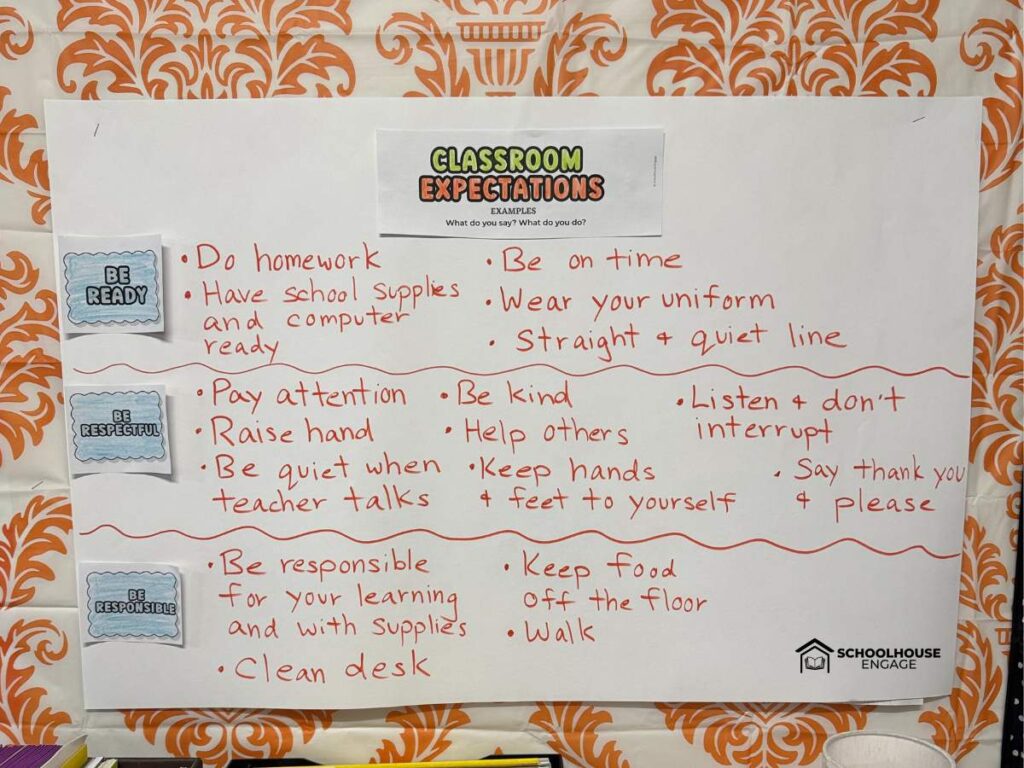 CLASSROOM
EXPECTATIONS
EXAMPLES
What do you say? What do you do?
BE
READY
• Do homework
• Have school supplies
and computer
ready
• Be on time
• Wear your uniform
• Straight & quiet line
BE
RESPECTFUL
• Pay attention
• Raise hand
• Be quiet when
teacher talks
• Be kind
• Help others
• Keep hands
& feet to yourself
• Listen & don't
interrupt
• Say thank you
& please
BE
RESPONSIBLE
• Be responsible
for your learning
and with supplies
• Clean desk
• Keep food
off the floor
• Walk
SCHOOLHOUSE
ENGAGE